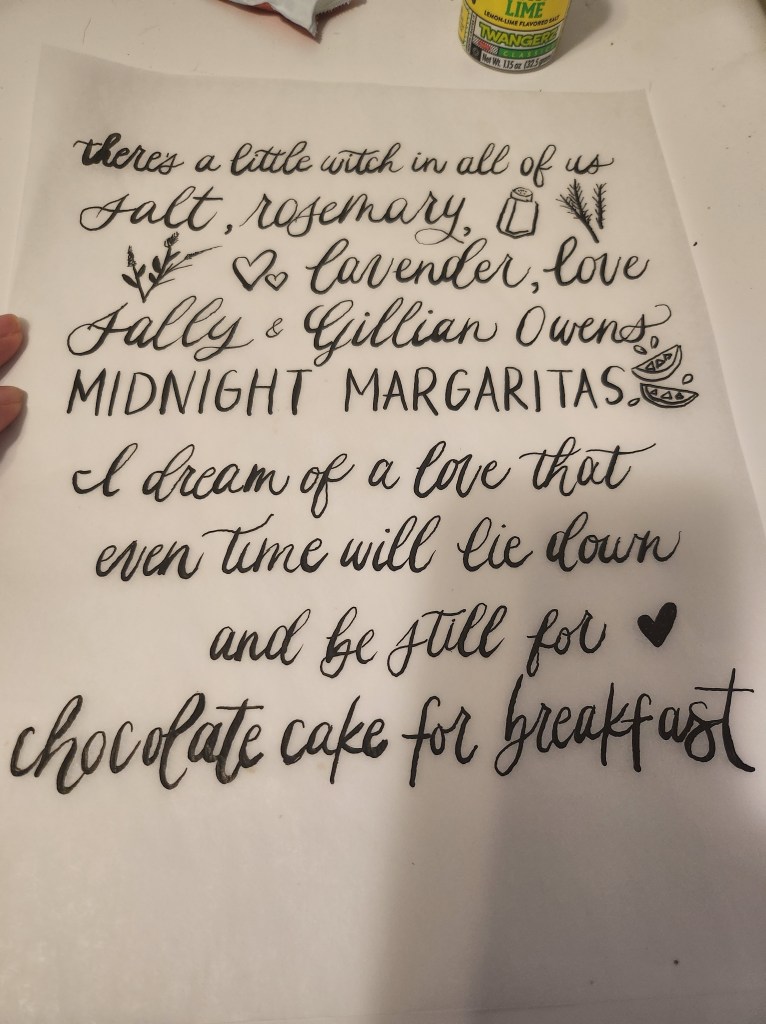 LIME
LEMON-LIME FLAVORED SALT
TWANGERZ
CLASSIC
Net Wt. 1.15 oz (32.5
there's a little witch in all of us
salt, rosemary,
lavender, love
Sally & Gillian Owens
MIDNIGHT MARGARITAS.
I dream of a love that
even time will lie down
and be still for
chocolate cake for breakfast